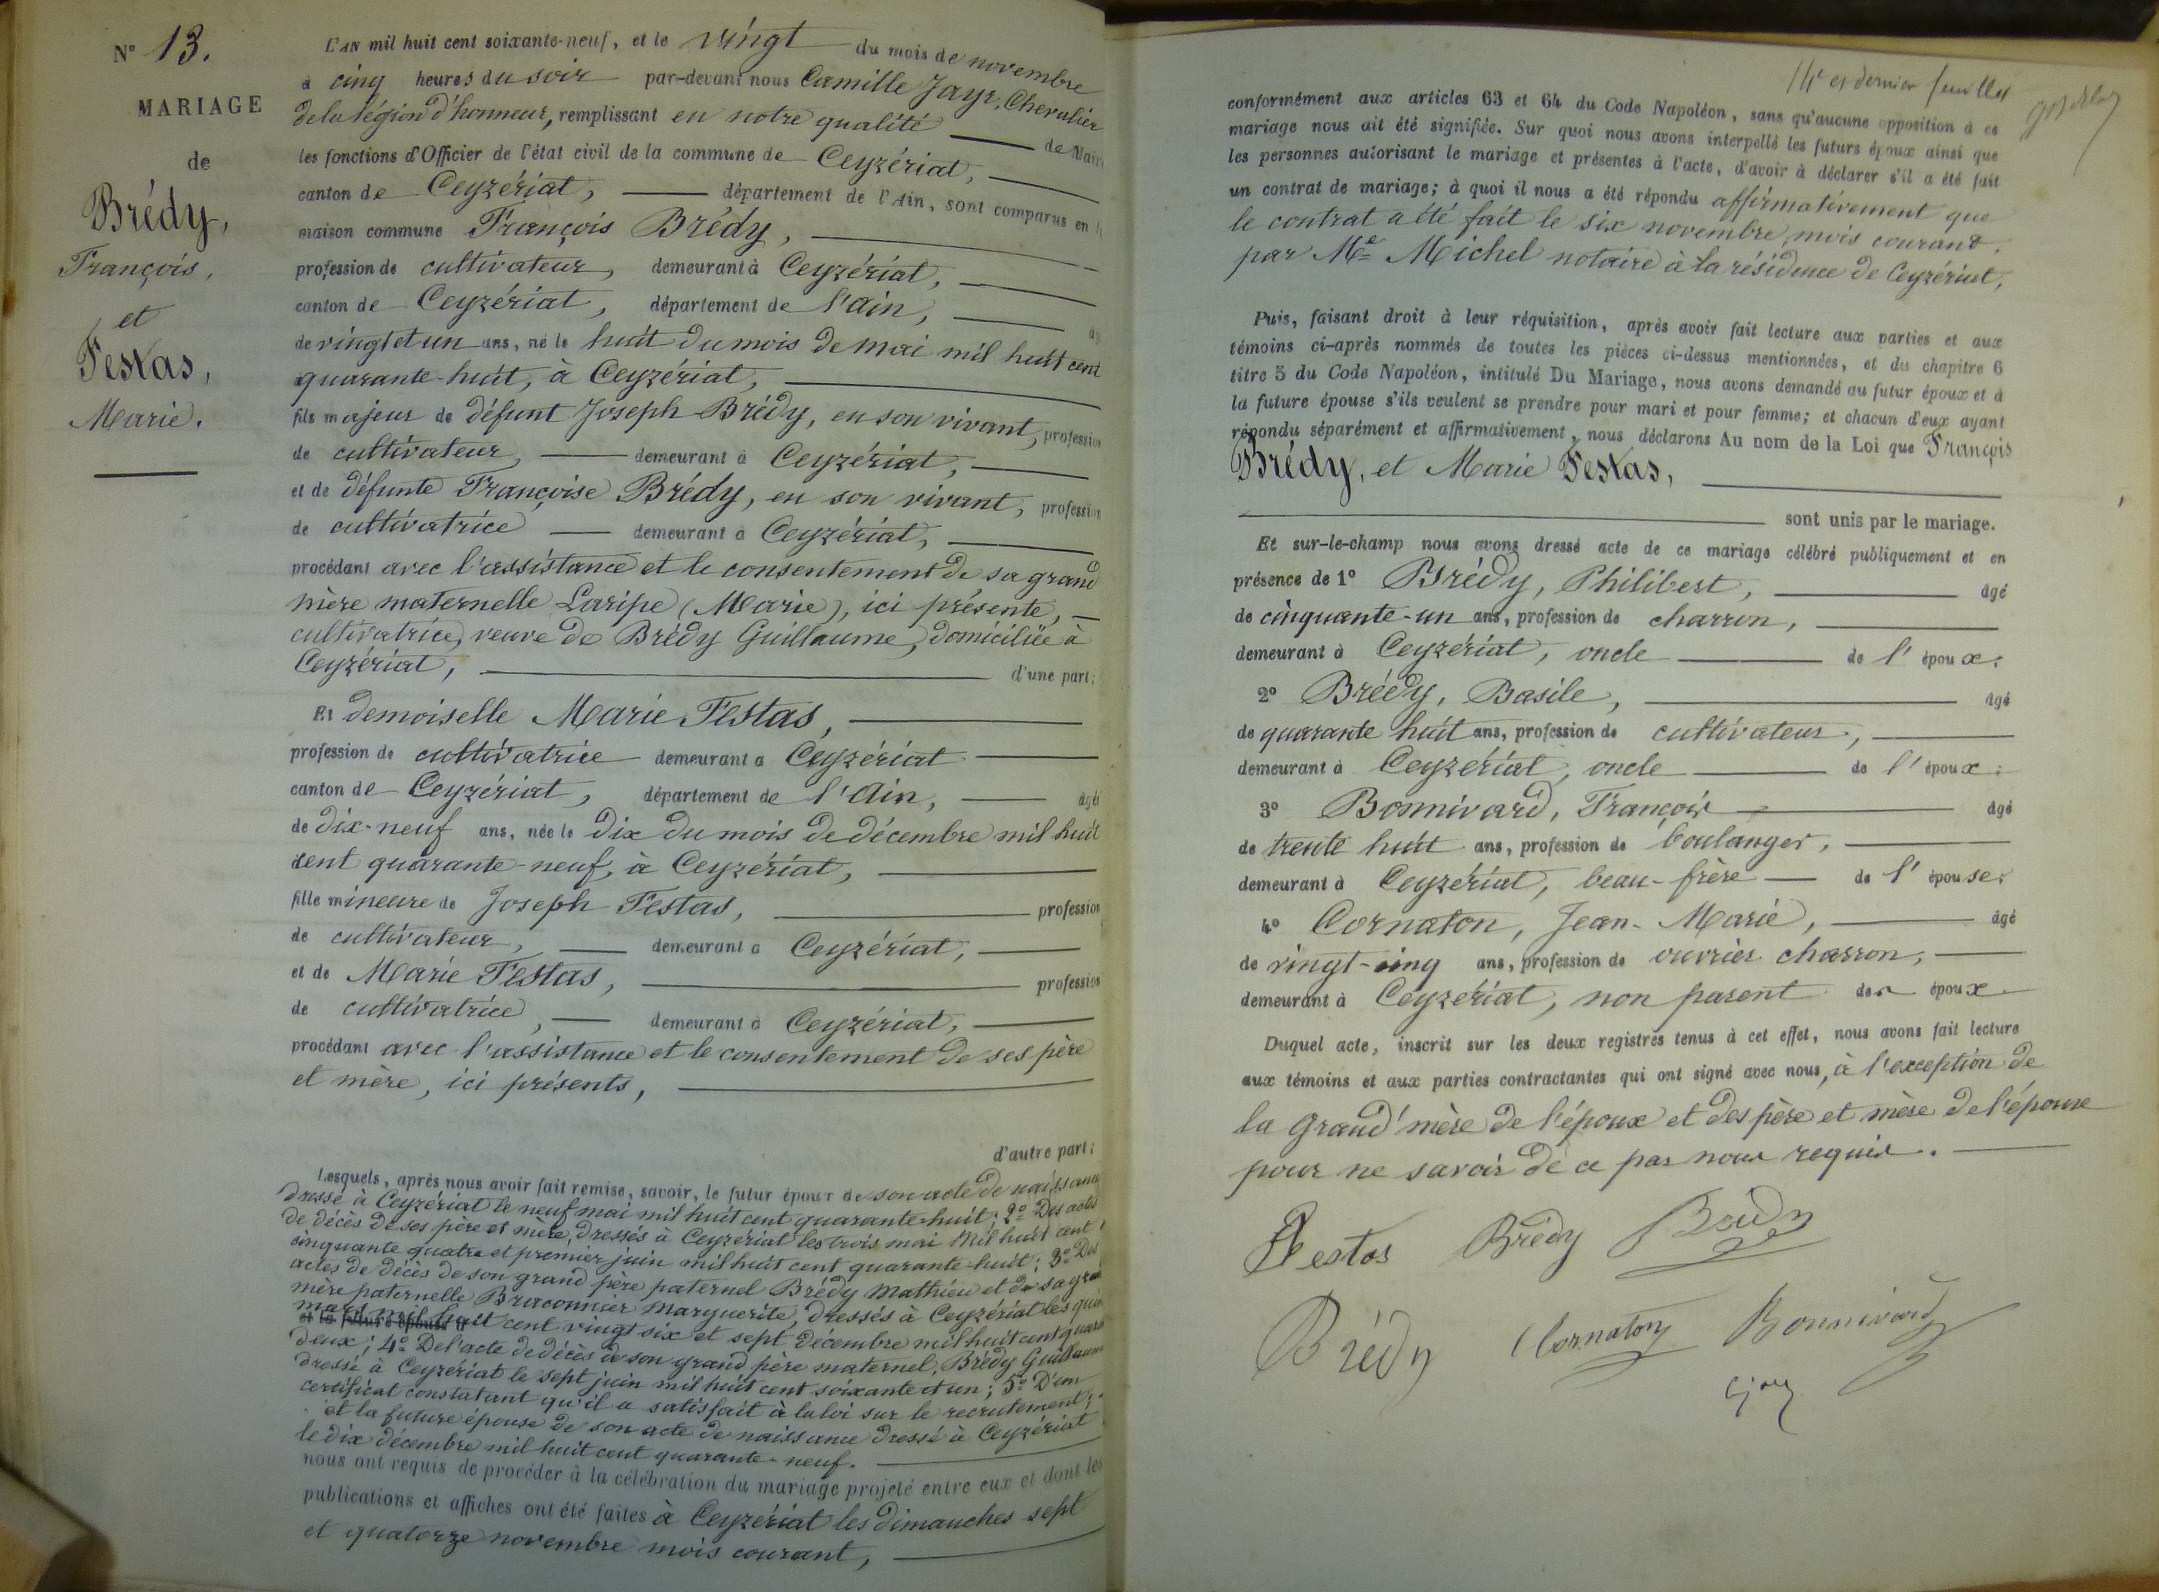 N° 13.
MARIAGE
de
Brédy,
François,
et
Festas,
Marie.
L'AN mil huit cent soixante-neuf, et le vingt du mois de novembre
à cinq heures du soir par-devant nous Camille Jayr, Chevalier
de la légion d'honneur, remplissant en notre qualité de Maire
les fonctions d'Officier de l'état civil de la commune de Ceyzériat,
canton de Ceyzériat, département de l'Ain, sont comparus en
maison commune François Brédy,
profession de cultivateur, demeurant à Ceyzériat,
canton de Ceyzériat, département de l'Ain,
de vingt et un ans, né le huit du mois de mai mil huit cent
quarante-huit, à Ceyzériat,
fils majeur de défunt Joseph Brédy, en son vivant, profession
de cultivateur, demeurant à Ceyzériat,
et de défunte Françoise Brédy, en son vivant, profession
de cultivatrice demeurant à Ceyzériat,
procédant avec l'assistance et le consentement de sa grand
mère maternelle Laripe (Marie), ici présente,
cultivatrice, veuve de Brédy Guillaume, domiciliée à
Ceyzériat, d'une part;
Et demoiselle Marie Festas,
profession de cultivatrice demeurant à Ceyzériat
canton de Ceyzériat, département de l'Ain, âgée
de dix-neuf ans, née le dix du mois de décembre mil huit
cent quarante-neuf, à Ceyzériat,
fille mineure de Joseph Festas, profession
de cultivateur, demeurant à Ceyzériat,
et de Marie Festas, profession
de cultivatrice, demeurant à Ceyzériat,
procédant avec l'assistance et le consentement de ses père
et mère, ici présents,
d'autre part;
Lesquels, après nous avoir fait remise, savoir, le futur époux de son acte de naissance
dressé à Ceyzériat le neuf mai mil huit cent quarante-huit; 2° Des actes
de décès de ses père et mère, dressés à Ceyzériat les trois mai mil huit cent
cinquante quatre et premier juin mil huit cent quarante-huit; 3° Des
actes de décès de son grand père paternel Brédy Mathieu et de sa grand
mère paternelle Braconnier Marguerite, dressés à Ceyzériat les
mars mil huit cent vingt six et sept décembre mil huit cent
et la future épouse
deux; 4° De l'acte de décès de son grand père maternel, Brédy Guillaume
dressé à Ceyzériat le sept juin mil huit cent soixante et un; 5° D'un
certificat constatant qu'il a satisfait à la loi sur le recrutement;
et la future épouse de son acte de naissance dressé à Ceyzériat
le dix décembre mil huit cent quarante-neuf.
nous ont requis de procéder à la célébration du mariage projeté entre eux et dont les
publications et affiches ont été faites à Ceyzériat les dimanches sept
et quatorze novembre mois courant,
14e et dernier feuillet
conformément aux articles 63 et 64 du Code Napoléon, sans qu'aucune opposition à ce
mariage nous ait été signifiée. Sur quoi nous avons interpellé les futurs époux ainsi que
les personnes autorisant le mariage et présentes à l'acte, d'avoir à déclarer s'il a été fait
un contrat de mariage; à quoi il nous a été répondu affirmativement que
le contrat a été fait le six novembre, mois courant,
par Me Michel notaire à la résidence de Ceyzériat,
Puis, faisant droit à leur réquisition, après avoir fait lecture aux parties et aux
témoins ci-après nommés de toutes les pièces ci-dessus mentionnées, et du chapitre 6
titre 5 du Code Napoléon, intitulé Du Mariage, nous avons demandé au futur époux et à
la future épouse s'ils veulent se prendre pour mari et pour femme; et chacun d'eux ayant
répondu séparément et affirmativement, nous déclarons Au nom de la Loi que François
Brédy, et Marie Festas,
sont unis par le mariage.
Et sur-le-champ nous avons dressé acte de ce mariage célébré publiquement et en
présence de 1° Brédy, Philibert, âgé
de cinquante-un ans, profession de charron,
demeurant à Ceyzériat, oncle de l'époux;
2° Brédy, Basile, âgé
de quarante huit ans, profession de cultivateur,
demeurant à Ceyzériat, oncle de l'époux;
3° Bonnivard, François âgé
de trente huit ans, profession de boulanger,
demeurant à Ceyzériat, beau-frère de l'épouse;
4° Cornaton, Jean-Marie, âgé
de vingt-cinq ans, profession de ouvrier charron,
demeurant à Ceyzériat, non parent des époux
Duquel acte, inscrit sur les deux registres tenus à cet effet, nous avons fait lecture
aux témoins et aux parties contractantes qui ont signé avec nous, à l'exception de
la Grand'mère de l'époux et des père et mère de l'épouse
pour ne savoir de ce par nous requis.
Festas Brédy Brédy
Brédy Cornaton Bonnivard